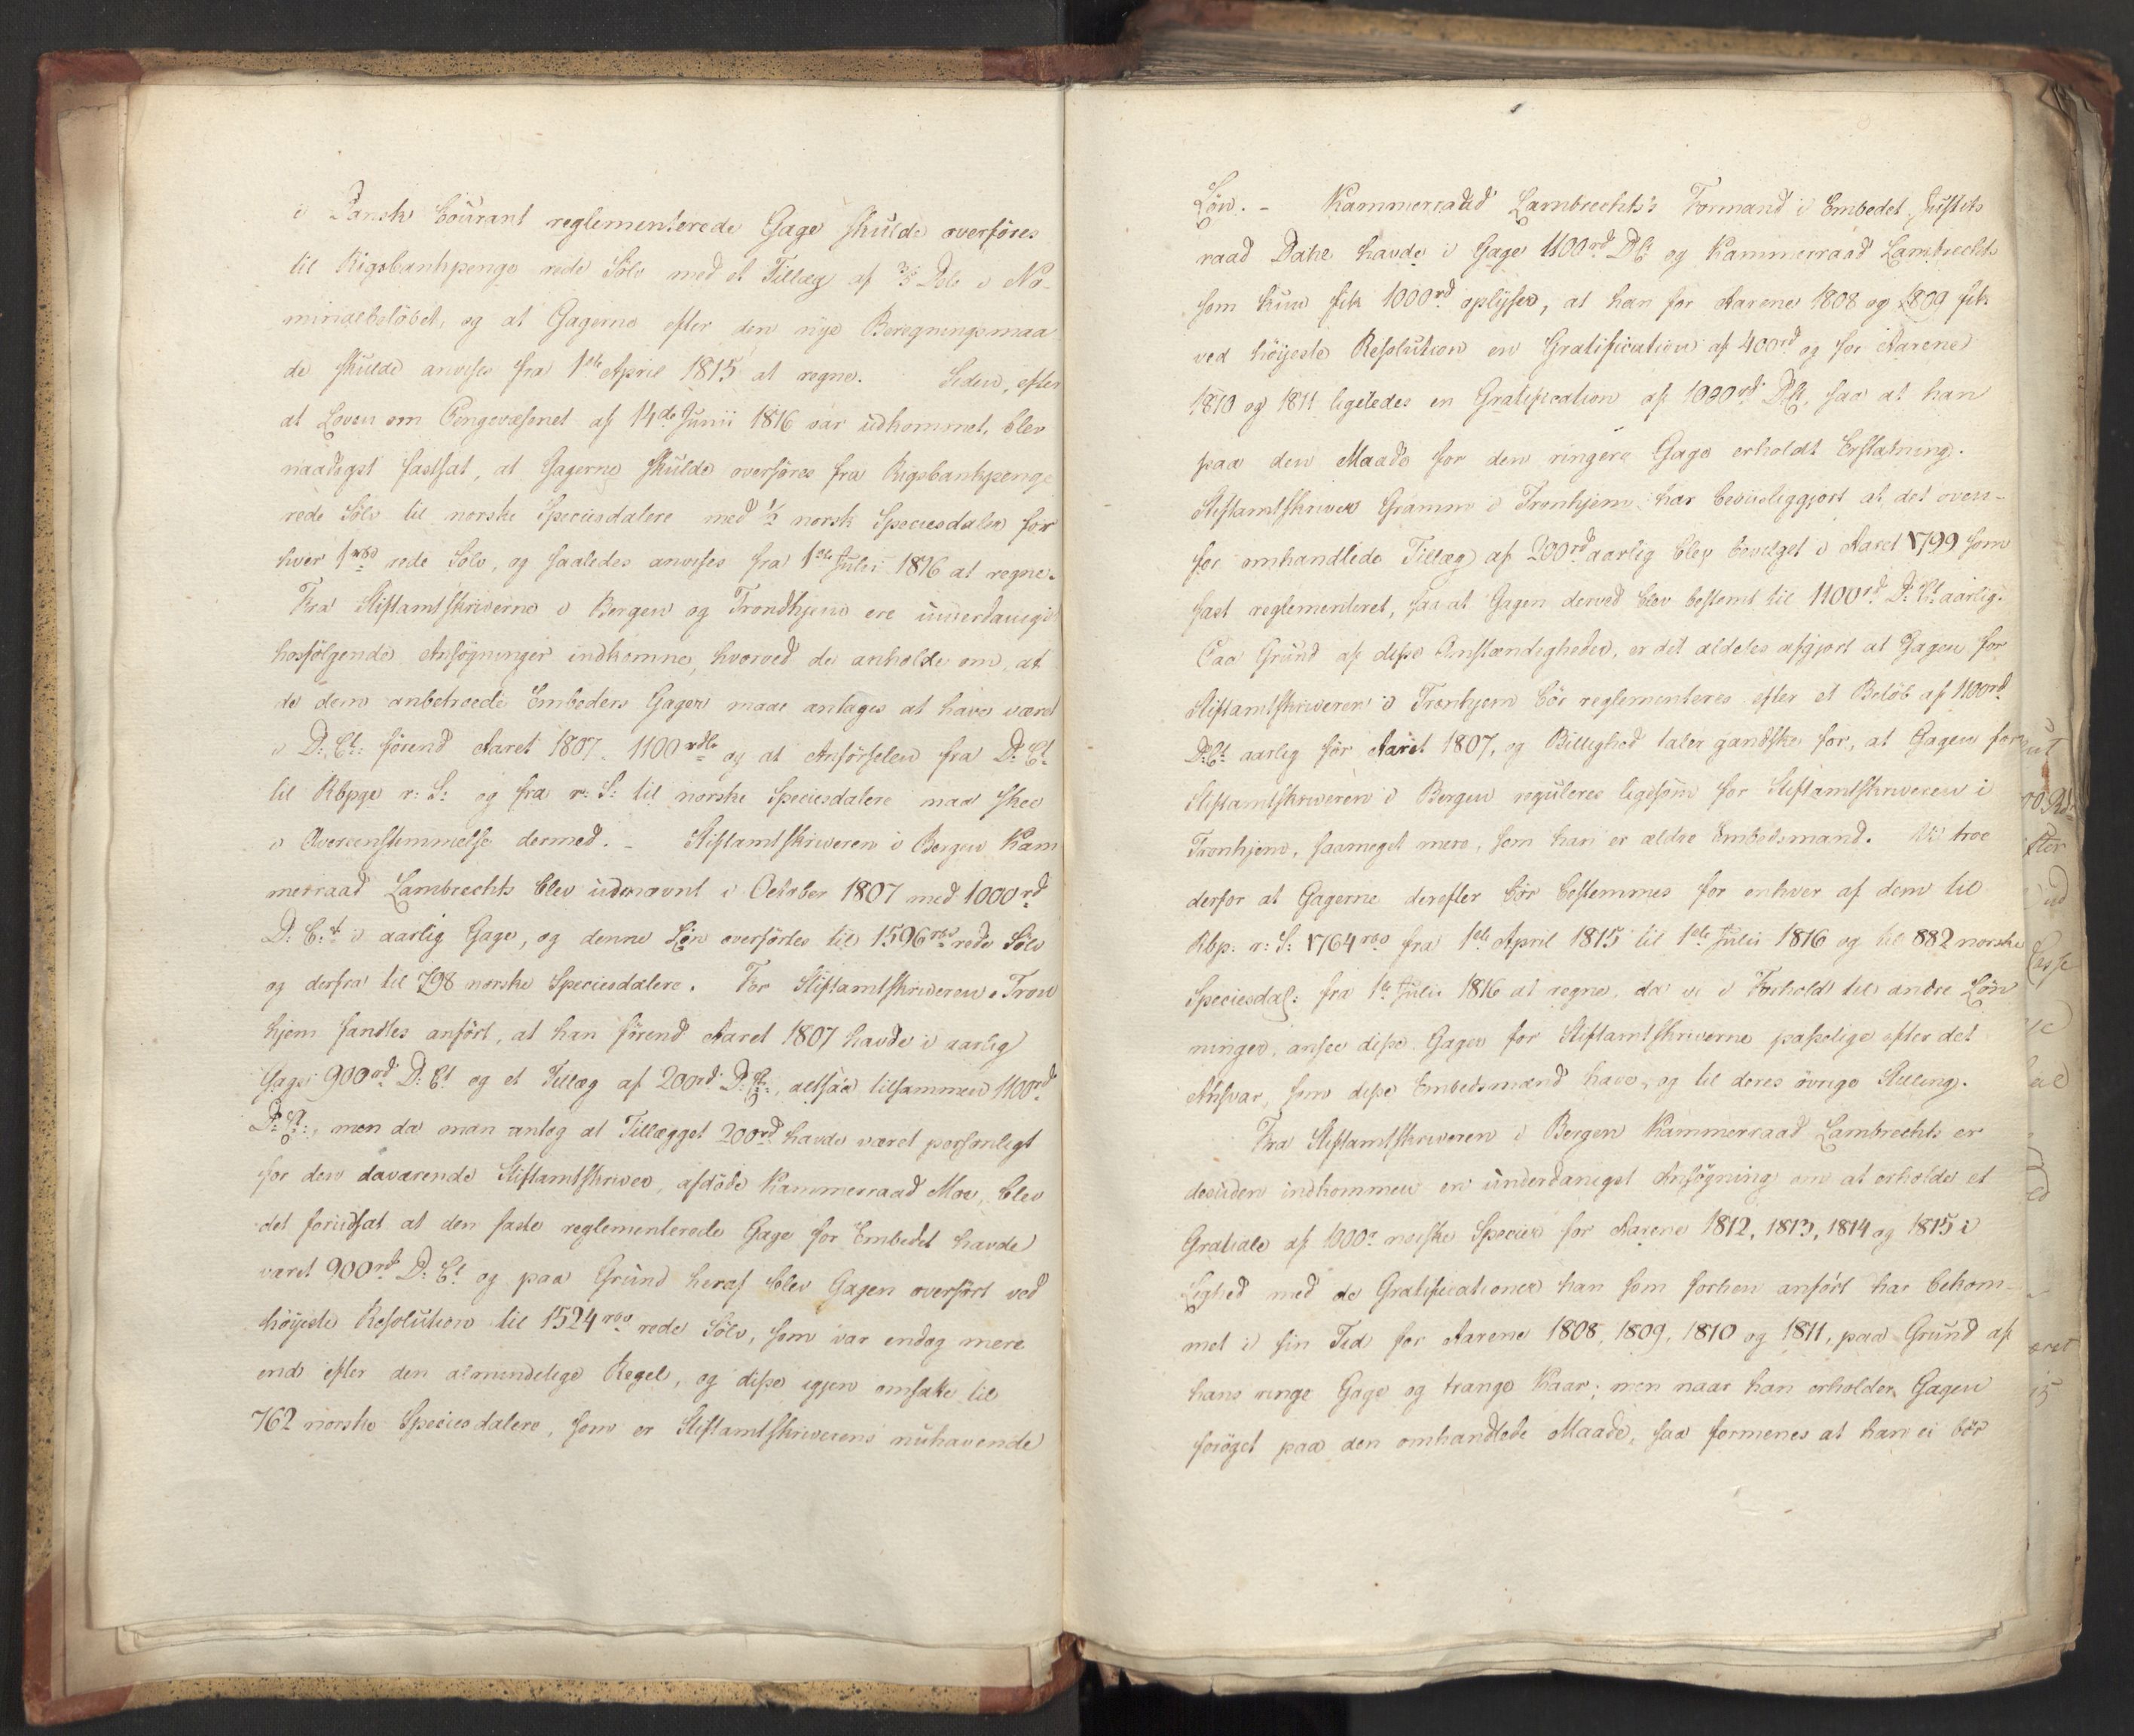 i Dansk Courant reglementerede Gage skulde overföres
til Rigsbankpenge rede Sölv med et Tillæg af 3/5 Dele i No-
minalbelöbet, og at Gagerne efter den nye Beregningsmaa
de skulde anvises fra 1ste April 1815 at regne. Siden, efter
at Loven om Pengevæsenet af 14de Junii 1816 var udkommet, blev
naadigst fastsat, at Gagerne skulde overföres fra Rigsbankpenge
rede Sölv til norske Speciesdalere med ½ norsk Speciesdaler for
hver 1 rbd rede Sölv, og saaledes anvises fra 1ste Julii 1816 at regne.
Fra Stiftamtskriverne i Bergen og Trondhjem ere underdanigst
hosfölgende Ansögninger indkomne, hvorved de anholde om, at
de dem anbetroede Embeders Gager maae antages at have været
i D: Ct: förend Aaret 1807 1100 rdlr og at Anförselen fra D: Ct
til Rbpge r: S: og fra r: S: til norske Speciesdalere maa skee
i Overeenstemmelse dermed. – Stiftamtskriveren i Bergen Kam
merraad Lambrechts blev udnævnt i October 1807 med 1000 rd
D: C:t i aarlig Gage, og denne Lön overförtes til 1596 rbd rede Sölv
og derfra til 798 norske Speciesdalere. For Stiftamtskriveren i Tron
hjem fandtes anfört, at han förend Aaret 1807 havde i aarlig
Gage 900 rd D: Ct og et Tillæg af 200 rd D: Ct:, altsaa tilsammen 1100 rd
D: Ct:, men da man antog at Tillægget 200 rd havde været personligt
for den daværende Stiftamtskriver, afdöde Kammerraad Moe, blev
det forudsat at den faste reglementerede Gage for Embedet havde
været 900 rd D: Ct og paa Grund heraf blev Gagen overfört ved
höieste Resolution til 1524 rbd rede Sölv, som var endog mere
end efter den almindelige Regel, og disse igjen omsatte til
762 norske Speciesdalere, som er Stiftamtskriverens nuhavende
Lön. – Kammerraad Lambrechts's Formand i Embedet, Justits
raad Dahl havde i Gage 1100 rd D Ct og Kammerraad Lambrechts
som kun fik 1000 rd oplyser, at han for Aarene 1808 og 1809 fik
ved höieste Resolution en Gratification af 400 rd og for Aarene
1810 og 1811 ligeledes en Gratification af 1000 rd D Ct, saa at han
paa den Maade for den ringere Gage erholdt Erstatning.
Stiftamtskriver Gramm i Tronhjem har beviisliggjort at det oven-
for omhandlede Tillæg af 200 rd aarlig blev bevilget i Aaret 1799 som
fast reglementeret, saa at Gagen derved blev bestemt til 1100 rd D: Ct aarlig.
Paa Grund af disse Omstændigheder, er det aldeles afgjort at Gagen for
Stiftamtskriveren i Tronhjem bör reglementeres efter et Belöb af 1100 rd
D: Ct aarlig för Aaret 1807, og Billighed taler gandske for, at Gagen for
Stiftamtskriveren i Bergen reguleres ligesom for Stiftamtskriveren i
Tronhjem, saameget mere, som han er ældre Embedsmand. Vi troe
derfor at Gagerne derefter bör bestemmes for enhver af dem til
Rbp. r: S: 1764 rbd fra 1ste April 1815 til 1ste Julii 1816 og til 882 norske
Speciesdal: fra 1ste Julii 1816 at regne, da vi i Forhold til andre Lön
ninger, ansee disse Gager for Stiftamtskriverne passelige efter det
Ansvar, som disse Embedsmænd have, og til deres övrige Stilling.
Fra Stiftamtskriveren i Bergen Kammerraad Lambrechts er
desuden indkommen en underdanigst Ansögning om at erholde et
Gratiale af 1000 norske Species for Aarene 1812, 1813, 1814 og 1815 i
Lighed med de Gratificationer han som forhen anfört har bekom-
met i sin Tid for Aarene 1808, 1809, 1810 og 1811, paa Grund af
hans ringe Gage og trange Kaar; men naar han erholder Gagen
foröget paa den omhandlede Maade, saa formenes at han ei bör